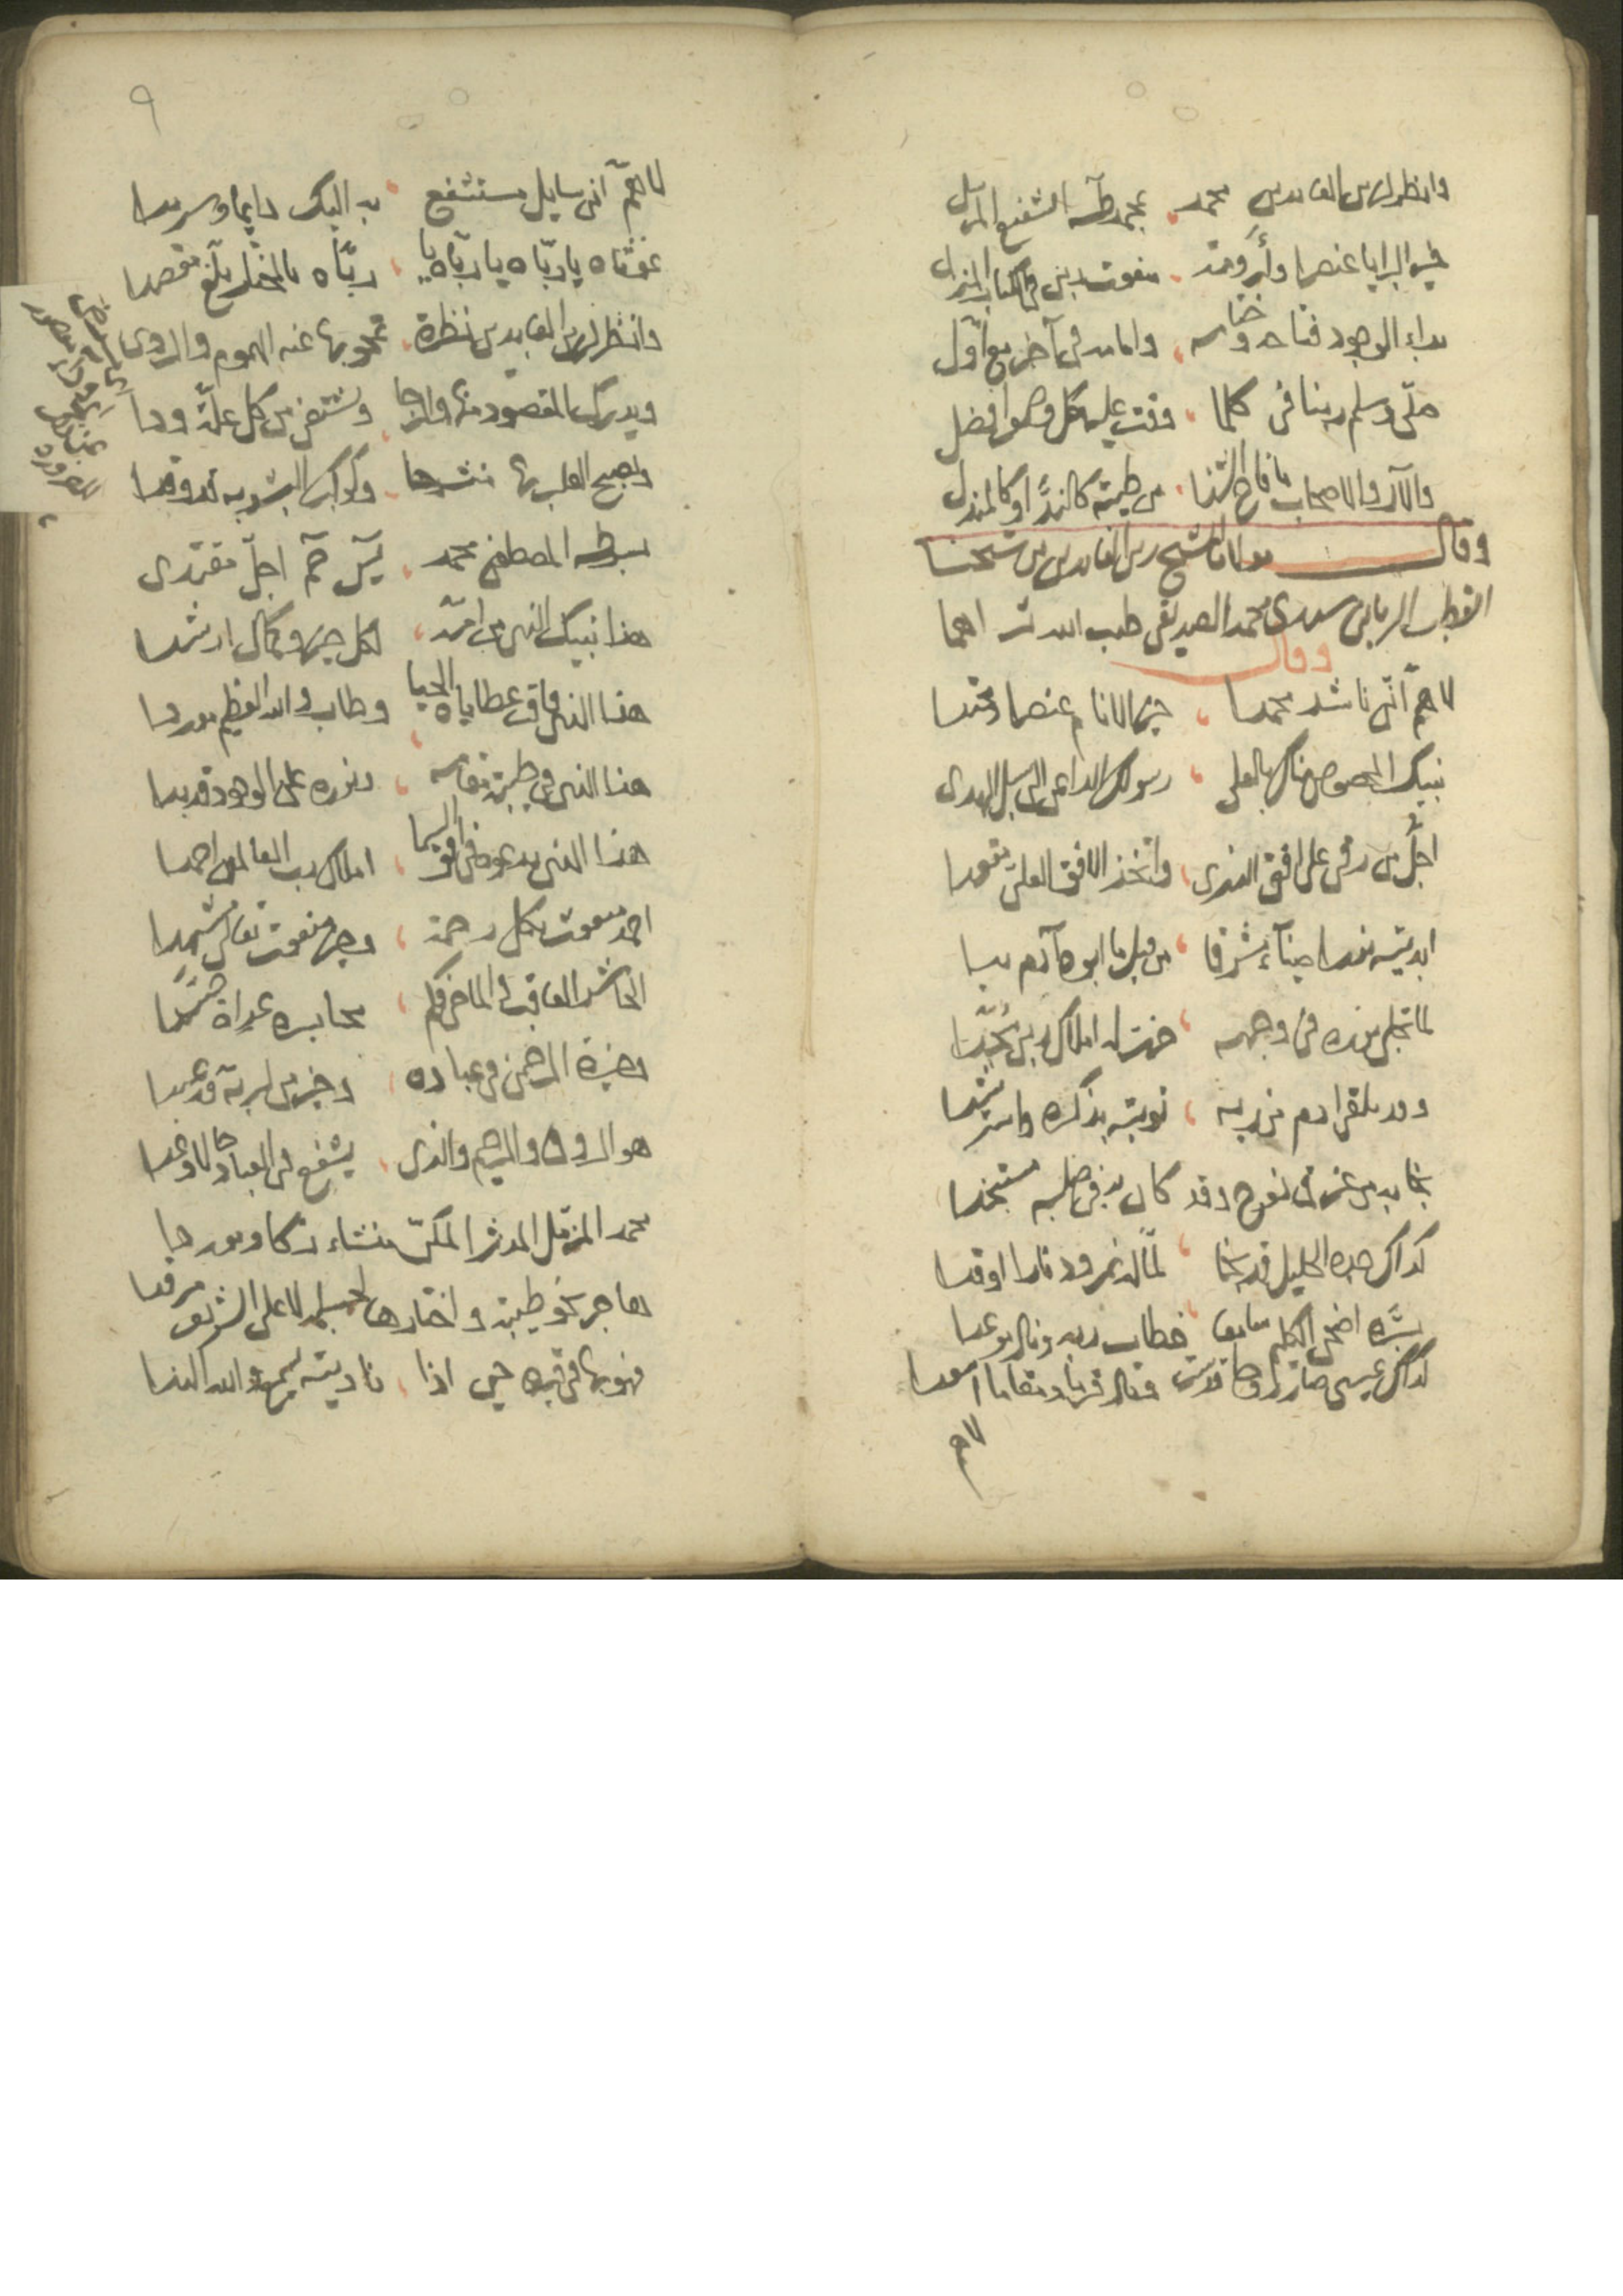 وانظر لزين العابدين محمد بمحمد طه الشفيع المرسل
خير البرايا عنصرا وأرومة منعوت ربي في الكتاب المنزل
بداء الوجود فتاحه وختامه وامامه في آخر مع أول
صلى وسلم ربنا في كلما وقت عليه كل وهو افضل
والآل والاصحاب ما فاح الثنا من طيبة كالند او كالمندل
وقال مولانا الشيخ زين العابدين بن شيخنا
القطب الرباني سيدي محمد الصديقي طيب الله ثراهما
وقال
لاهم اني ناشد محمدا خير الانام عنصرا ومحتدا
نبيك المخصوص منك بالعلى رسولك الداعي الى سبل الهدى
اجل من رقى على افق الذرى واتخذ الافق العلي مقعدا
ابديته نورا ضياء مشرقا من قبل ما ابوه آدم بدا
لما تجلى نوره في وجهه خرت له املاك ربي سجدا
وقد تلقى ادم من ربه توبته بذكره واسترشدا
نجا به من غرق نوح وقد كان به في صلبه مستنجدا
كذاك جده الخليل قد نجا لما له نمرود نارا اوقدا
بسره اضحى الكليم سامعا خطاب ربه ونال موعدا
كذاك عيسى صار روحا قدست ونال قربا ومقاما اسعدا
لاهم
٩
لاهم اني سايل مستشفع به اليك دايما وسرمدا
غوثاه يا رباه يا رباه يا رباه بالمختار بلغ مقصدا
وانظر لزين العابدين نظرة تمحو بها عنه الهموم والردى
ويدرك المقصود منها والرجا ويشتفي من كل علة ودا
ويصبح القلب بها منشرحا وكوكب البشر به توقدا
بسر طه المصطفى محمد يس حم اجل مقتدى
هذا نبيك الذي من امه لكل خير وكمال ارشدا
هذا الذي فاق عطاياه الحيا وطاب والله العظيم موردا
هذا الذي في طيبة مقامه ونوره على الوجود قد بدا
هذا الذي يدعوه في افق السما املاك رب العالمين احمدا
احمد مبعوث بكل رحمة وخير منعوت تعالى مشهدا
الحاشر العاقب الماحي فكم محا بسره عداة حسدا
وخيرة الرحمن في عباده وخير من لربه قد عبدا
هو الروف والرحيم والذي يشفع في العباد كلا وغدا
محمد المزمل المدثر المكي منشاء زكا ومولدا
هاجر نحو طيبة واختارها لجسمه الاعلى الشريف مرقدا
فهو بها في قبره حي اذا ناديته يسمع والله الندا